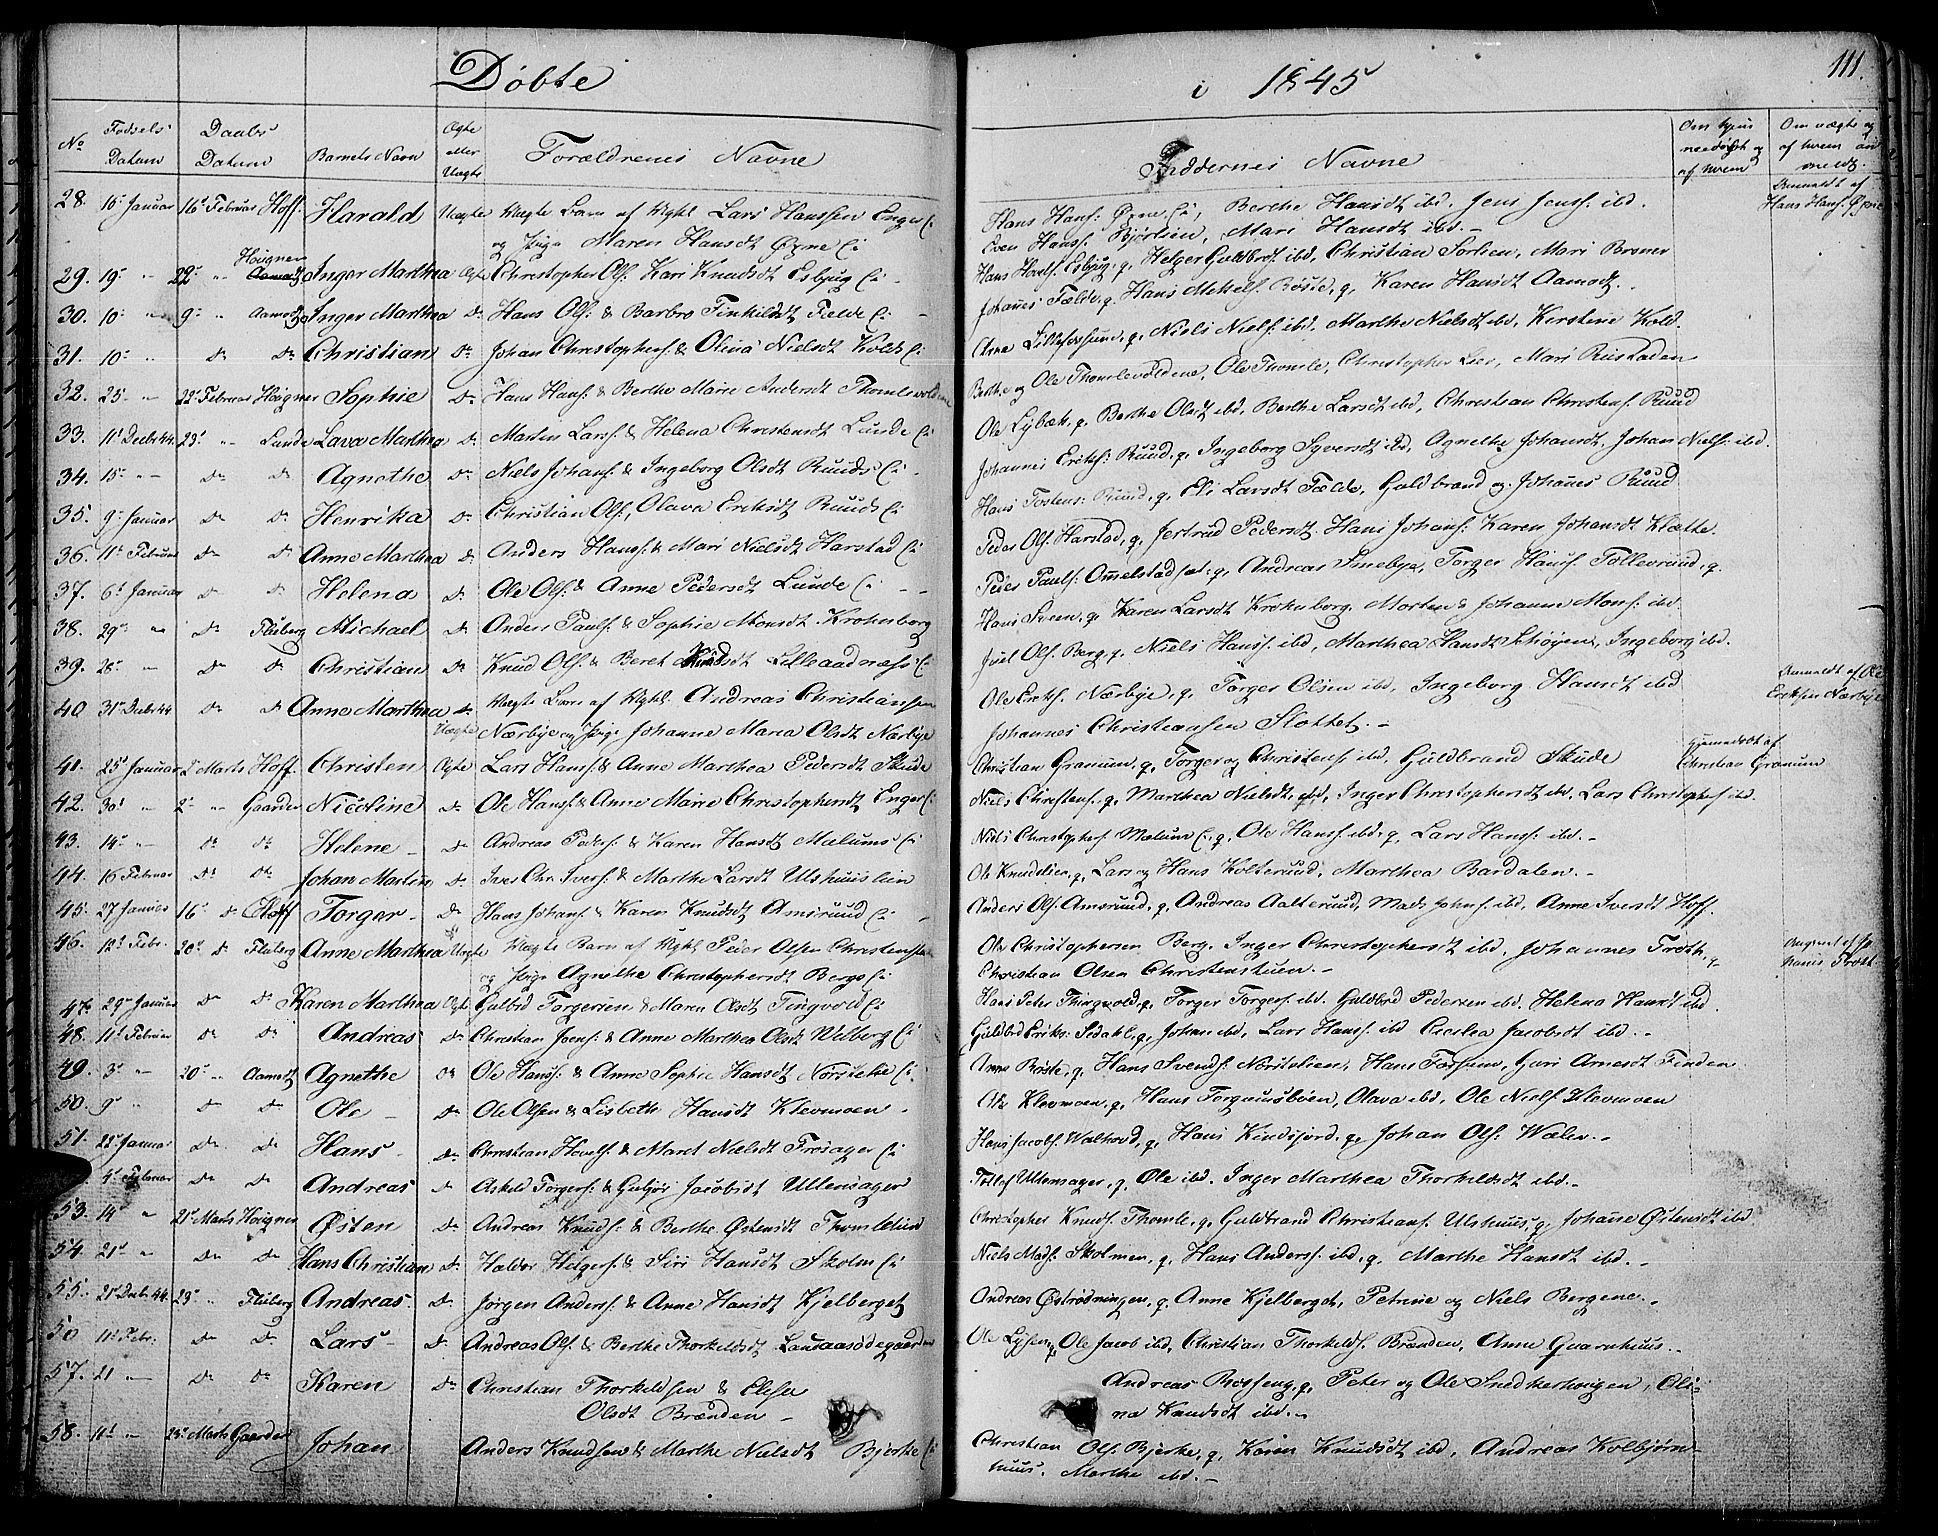 Døbte
i 1845
111.
No
Fødsels Datum
Daabs Datum
Barnets Navn
Ægte eller Uægte
Forældrenes Navne
Faddernes Navne
af hvem
28. 16d Januar 16d Februar Hoff. Harald Uægte Uægte Barn af Ugkl Lars Hanssen Enger Ei
og Pige Maren Hansdt Øyne Ei
Hans Hans: Øyne Ei, Berthe Hansdt ibd. Jens Jens: ibd.
Even Hans: Bjørlien, Mari Hansdt ibd. -
Anmeldt af Hans Hans: Øyne
Høigner
29. 19d " 22d " Aamodt Inger Marthea Ægte Christopher Ols: Kari Knudsdt Esbjug Ei -
Hans Hans: Esbjug, q, Helge Guldbrdt ibd, Christian Sørlien, Mari Broner
30. 10d " 9d " Aamodt Inger Marthea Do Hans Ols: & Barbro Finkildsdt Fælde Ei -
Johanes Fælde, q, Hans Mikels. Røste, q, Karen Hansdt Aamodt.
31. 10d " do do Christian Do Johan Christophers: & Olina Nielsdt Kolds Ei
q, Niels Niels: ibd, Marthe Nielsdt ibd, Kirstine Kold.
32. 25d " 22d Februar Høigner Sophie Do Hans Hans: & Berthe Marie Andersdt Thomlevoldene
Berthe og Ole Thomlevoldene, Ole Thomle, Christopher Lier, Mari Rustaden
33. 11d Decbr 44. 23d " Lunde Lava Marthea Do Martin Lars: & Helena Christensdt Lunde Ei
Ole Lybæk, q, Berthe Olsdt ibd, Berthe Larsdt ibd, Christian Christens: Ruud
34. 15d " do do Agnethe Do Niels Johans: & Ingeborg Olsdt Ruuds Ei -
Johannes Eriks: Ruud, q, Ingeborg Syversdt ibd, Agnethe Johansdt, Johan Niels: ibd.
35. 9d Januar do do Henrika Do Christian Ols:, Olava Eriksdt Ruuds Ei
Hans Tostens: Ruud, q, Eli Larsdt Fælde, Guldbrand og Johanes Ruud
36. 11d Februar do do Anne Marthea do Anders Hans: & Mari Nielsdt Harstad Ei
Peder Ols: Harstad, q, Jertrud Pedersdt, Hans Johans: Karen Johansdt Klæthe.
37. 6d Januar do do Helena Do Ole Ols: & Anne Pedersdt Lunde Ei - -
Peder Pauls: Ommelstadsæt: q, Andreas Smebye, Torger Hans: Tollevrund, q.
38. 29d " do Fluberg Michael Do Anders Pauls: & Sophie Monsdt Krokenborg
Hans Sveen, q, Karen Larsdt Krokenborg. Morten & Johanne Mons: ibd.
39. 28d " do do Christian Do Knud Ols: & Beret Lilleaadnæss Ei
Juel Ols: Berg, q, Niels Hans: ibd, Marthea Hansdt Schøyen, Ingeborg ibd.
40 31d Decbr 44 do do Anne Marthea do Uægte Barn af Ugkl. Andreas Christiansen
Uægte Nærbye og Pige Johanne Maria Olsdt Nærbye
Ole Eriks: Nærbye, q, Torger Olsen ibd, Ingeborg Hansdt ibd
Johannes Christiansen Slottet. -
Anmeldt af Ole Eriksen Nærbye
41. 25d Januar 2d Marts Hoff. Christen Ægte Lars Hans: & Anne Marthea Pedersdt Skude
Christian Granum, q, Torger og Christens: ibd, Guldbrand Skude
Hjemmedøbt af Christian Granum
42. 30d " 2d " Gaarder Nicoline do Ole Hans: & Anne Marie Christophersdt Enger Ei
Niels Christens:, q, Marthea Nielsdt, ibd, Inger Christophersdt ibd, Lars Christophs: ibd.
43. 14d " do do Helene - Do Andreas Peders: & Karen Hansdt Mælums Ei
Niels Christophers: Mælum Ei, q, Ole Hans: ibd, q, Lars Hans: ibd. -
44. 16 Februar do do Johan Martin Do Iver Chr. Ivers: & Marthe Larsdt Ulshuuslien
Ole Knudslien, q, Lars og Hans Kolterund, Marthea Bardalen. -
45. 27 Januar 16d do Hoff Torger - do Hans Johans: & Karen Knudsdt Amsrund Ei -
Anders Ols: Amsrund, q, Andreas Aalterud, Mads Johns: ibd. Anne Iversdt Hoff.
46. 12d Febr. 20d do Fluberg Anne Marthea Uægte Uægte Barn af Ugkl Peder Olsen Christenstuen
og Pige Agnethe Christophersdt Bergs Ei
Ole Christophersen Berg. Inger Christophersdt ibd. Johannes Troth, q,
Christian Olsen Christenstuen. -
Angivet af Johannes Troth
47. 29d Januar do do Karen Marthea Ægte Gulbrd Torgersen & Maren Olsdt Tingvold Ei
Hans Peter Thingvold, q, Torger Torgers: ibd. Guldbrd Pedersen ibd, Helena Hansdt ibd.
48. 11d Februar do do Andreas Do Christian Joens: & Anne Marthea Olsdt Velberg Ei
Guldbd Eriks: Sedahl, q, Johan ibd, Lars Hans: ibd Cecilia Jacobsdt ibd. -
49. 3d " 20d " Aamodt Agnethe do Ole Hans: & Anne Sophie Hansdt Norstelie Ei
Anne Røste, q, Hans Svends: Norstelien, Hans Fossum, Guri Arnesdt Finden
50. 9d " do do Ole - Do Ole Olsen & Lisbeth Hansdt Klevmoen -
Ole Klevmoen, q, Hans Torgunsboen, Olava ibd, Ole Niels: Klevmoen
51. 22d Januar do do Hans - Do Christian Hans: & Maret Nielsdt Frøsager Ei
Hans Jacobs: Walhovd, q, Hans Kindsfjord, q, Johan Ols: Walen. -
4d Februar do do Andreas do Askild Torgers: & Guljør Jacobsdt Ullensager
Tollef Ullensager, q, Ole ibd. Inger Marthea Thorkildsdt ibd. -
53. 14d " 21d Marts Høigner Østen Do Andreas Knuds: & Berthe Østensdt Thomleeied
Christopher Knuds: Thomle, q, Guldbrand Christians: Ulshuus, q, Johane Østensdt ibd.
54. 21d " do do Hans Christian Do Haldor Helges: & Siri Hansdt Skolm Ei
Niels Mads: Skolmen, q, Hans Anders: ibd, q, Marthe Hansdt ibd. -
55. 21d Decbr 44. 23d " Fluberg Andreas. Do Jørgen Anders: & Anne Hansdt Kjelberget
Andreas Østrødningen, q, Anne Kjelberget, Petrine og Niels Bergene. -
50 11d Febr. do do Lars - Do Andreas Ols: & Berthe Thorkildsdt Landaasødegaarden
Ole Lysen, q, Ole Jacob ibd, Christian Thorkilds. Brænden, Anne Quarnhuus. -
57. 21 " do do Karen Do Christian Thorkildsen & Elise
Olsdt Brænden -
Andreas Røsseng, q, Peter og Ole Snedkerhougen, Oli-
na Knudsdt ibd. -
58. 11d " 23d Marts Gaarder Johan Anders Knudsen & Marthe Nielsdt Bjerke Ei
Christian Ols: Bjerke, q, Karen Knudsdt ibd, Andreas Kolbjørn-
huus. Marthe ibd. -